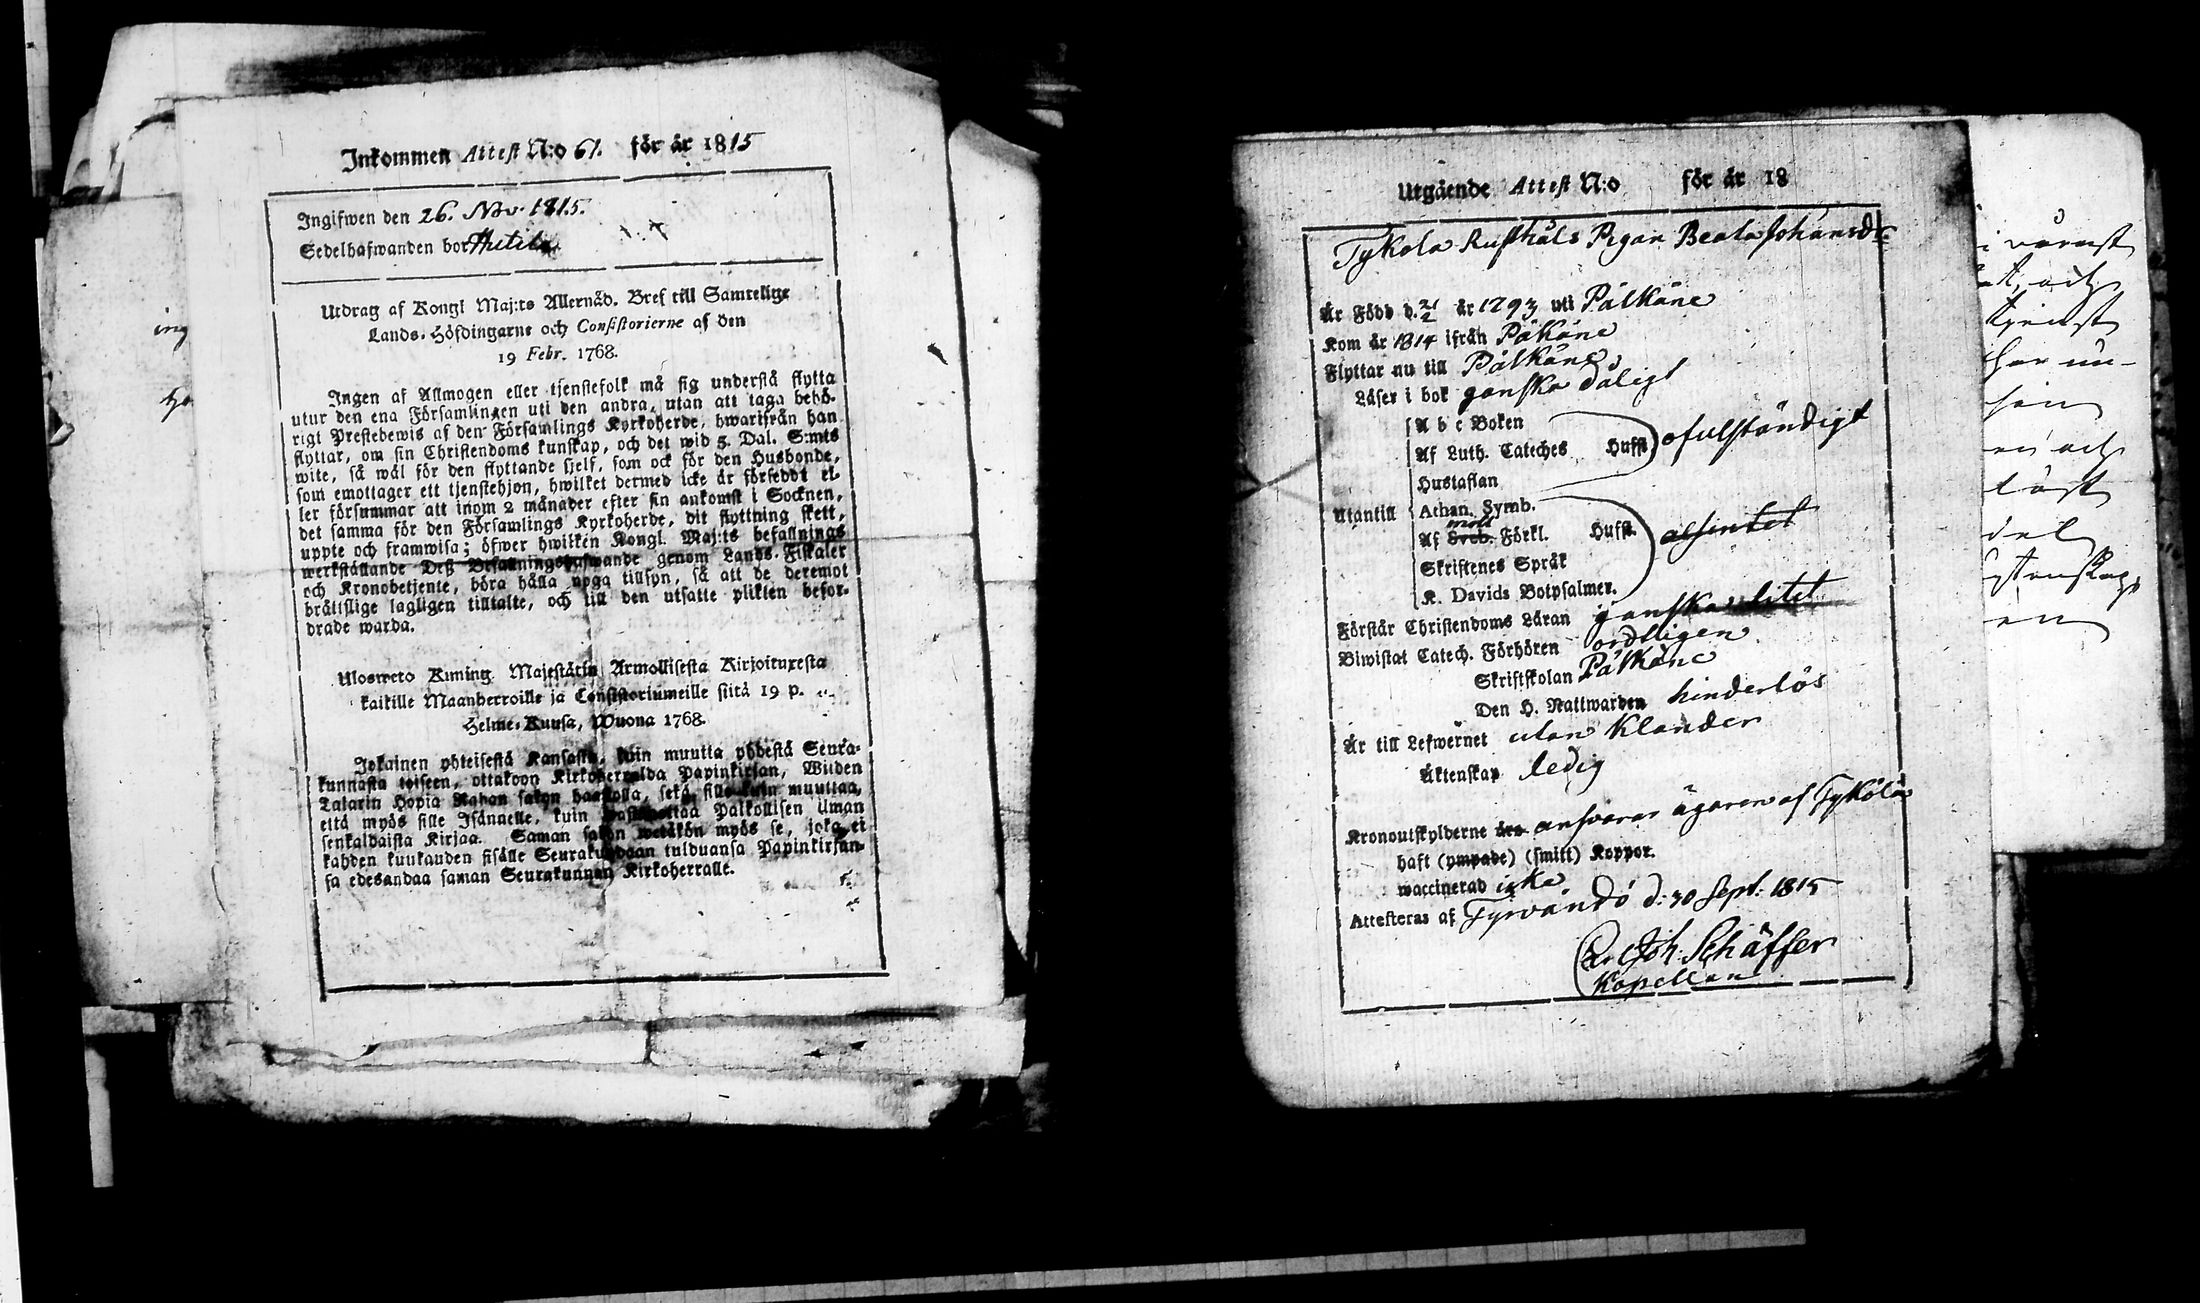 Inkommen Attest N:o 61. för år 1815
Ingifwen den 26. Nov. 1815.
Sedelhafwanden bor Hutila
Utdrag af Kongl Maj:ts Allernåd. Bref till Samtelige
Lands-Höfdingarne och Consistorierne af den
19 Febr. 1768.
Ingen af Allmogen eller tjenstefolk må sig understå flytta
utur den ena Församlingen uti den andra, utan att taga behö-
rigt Prestebewis af den Församlings Kyrkoherde, hwarifrån han
flyttar, om sin Christendoms kunskap, och det wid 5. Dal. S:mts
wite, så wäl för den flyttande sjelf, som ock för den Husbonde,
som emottager ett tjenstehjon, hwilket dermed icke är försedt el-
ler försummar att inom 2 månader efter sin ankomst i Socknen,
det samma för den Församlings Kyrkoherde, dit flyttning skett,
uppte och framwisa; öfwer hwilken Kongl. Maj:ts befallnings
werkställande Deß Befallningshafwande genom Lands-Fiskaler
och Kronobetjente, böra hålla noga tillsyn, så att de deremot
bråttslige lagligen tilltalte, och till den utsatte plikten befor-
drade warda.
Ulosweto Kuning. Majestätin Armollisesta Kirjoituxesta
kaikille Maanherroille ja Consistoriumeille siitä 19 p.
Helme-Kuusa, Wuona 1768.
Jokainen yhteisestä Kansasta, kuin muutta yhdestä Seura-
kunnasta toiseen, ottakoon Kirkoherralda Papinkirjan, Wiiden
Talarin Hopia Rahan sakon haastolla, sekä sille kuin muuttaa,
että myös sille Isännelle, kuin wastanottaa Palkollisen ilman
senkaldaista Kirjaa. Saman sakon wetäkön myös se, joka ei
kahden kuukauden sisälle Seurakundaan tulduansa Papinkirjan-
sa edesandaa saman Seurakunnan Kirkoherralle.
Utgående Attest N:o för år 18
Tykola Rusthåls Pigan Beata Johansdr
Är Född d. 21/2 år 1793 uti Pälkäne
Kom år 1814 ifrån Päkäne
Flyttar nu till Pälkäne
Läser i bok ganska dåligt
A b c Boken
Af Luth. Cateches Hufst. ofulständigt
Hustaflan
Utantill Athan. Symb.
Af Sveb. Förkl. Hufst. alsintet
Skriftenes Språk
K. Davids Botpsalmer.
Förstår Christendoms Läran ganska litet
Biwistat Catech. Förhören ordtligen
Skriftskolan Pälkäne
Den H. Nattwarden hinderlös
Är till Lefwernet utan Klander
Äktenskap ledig
Kronoutskylderne äro ansvarar ägaren af Tykölä
haft (ympade) (smitt) Koppor.
waccinerad icke
Attesteras af Tyrvändö d: 30 Sept. 1815
Carl Joh. Schäffer
Kapellan